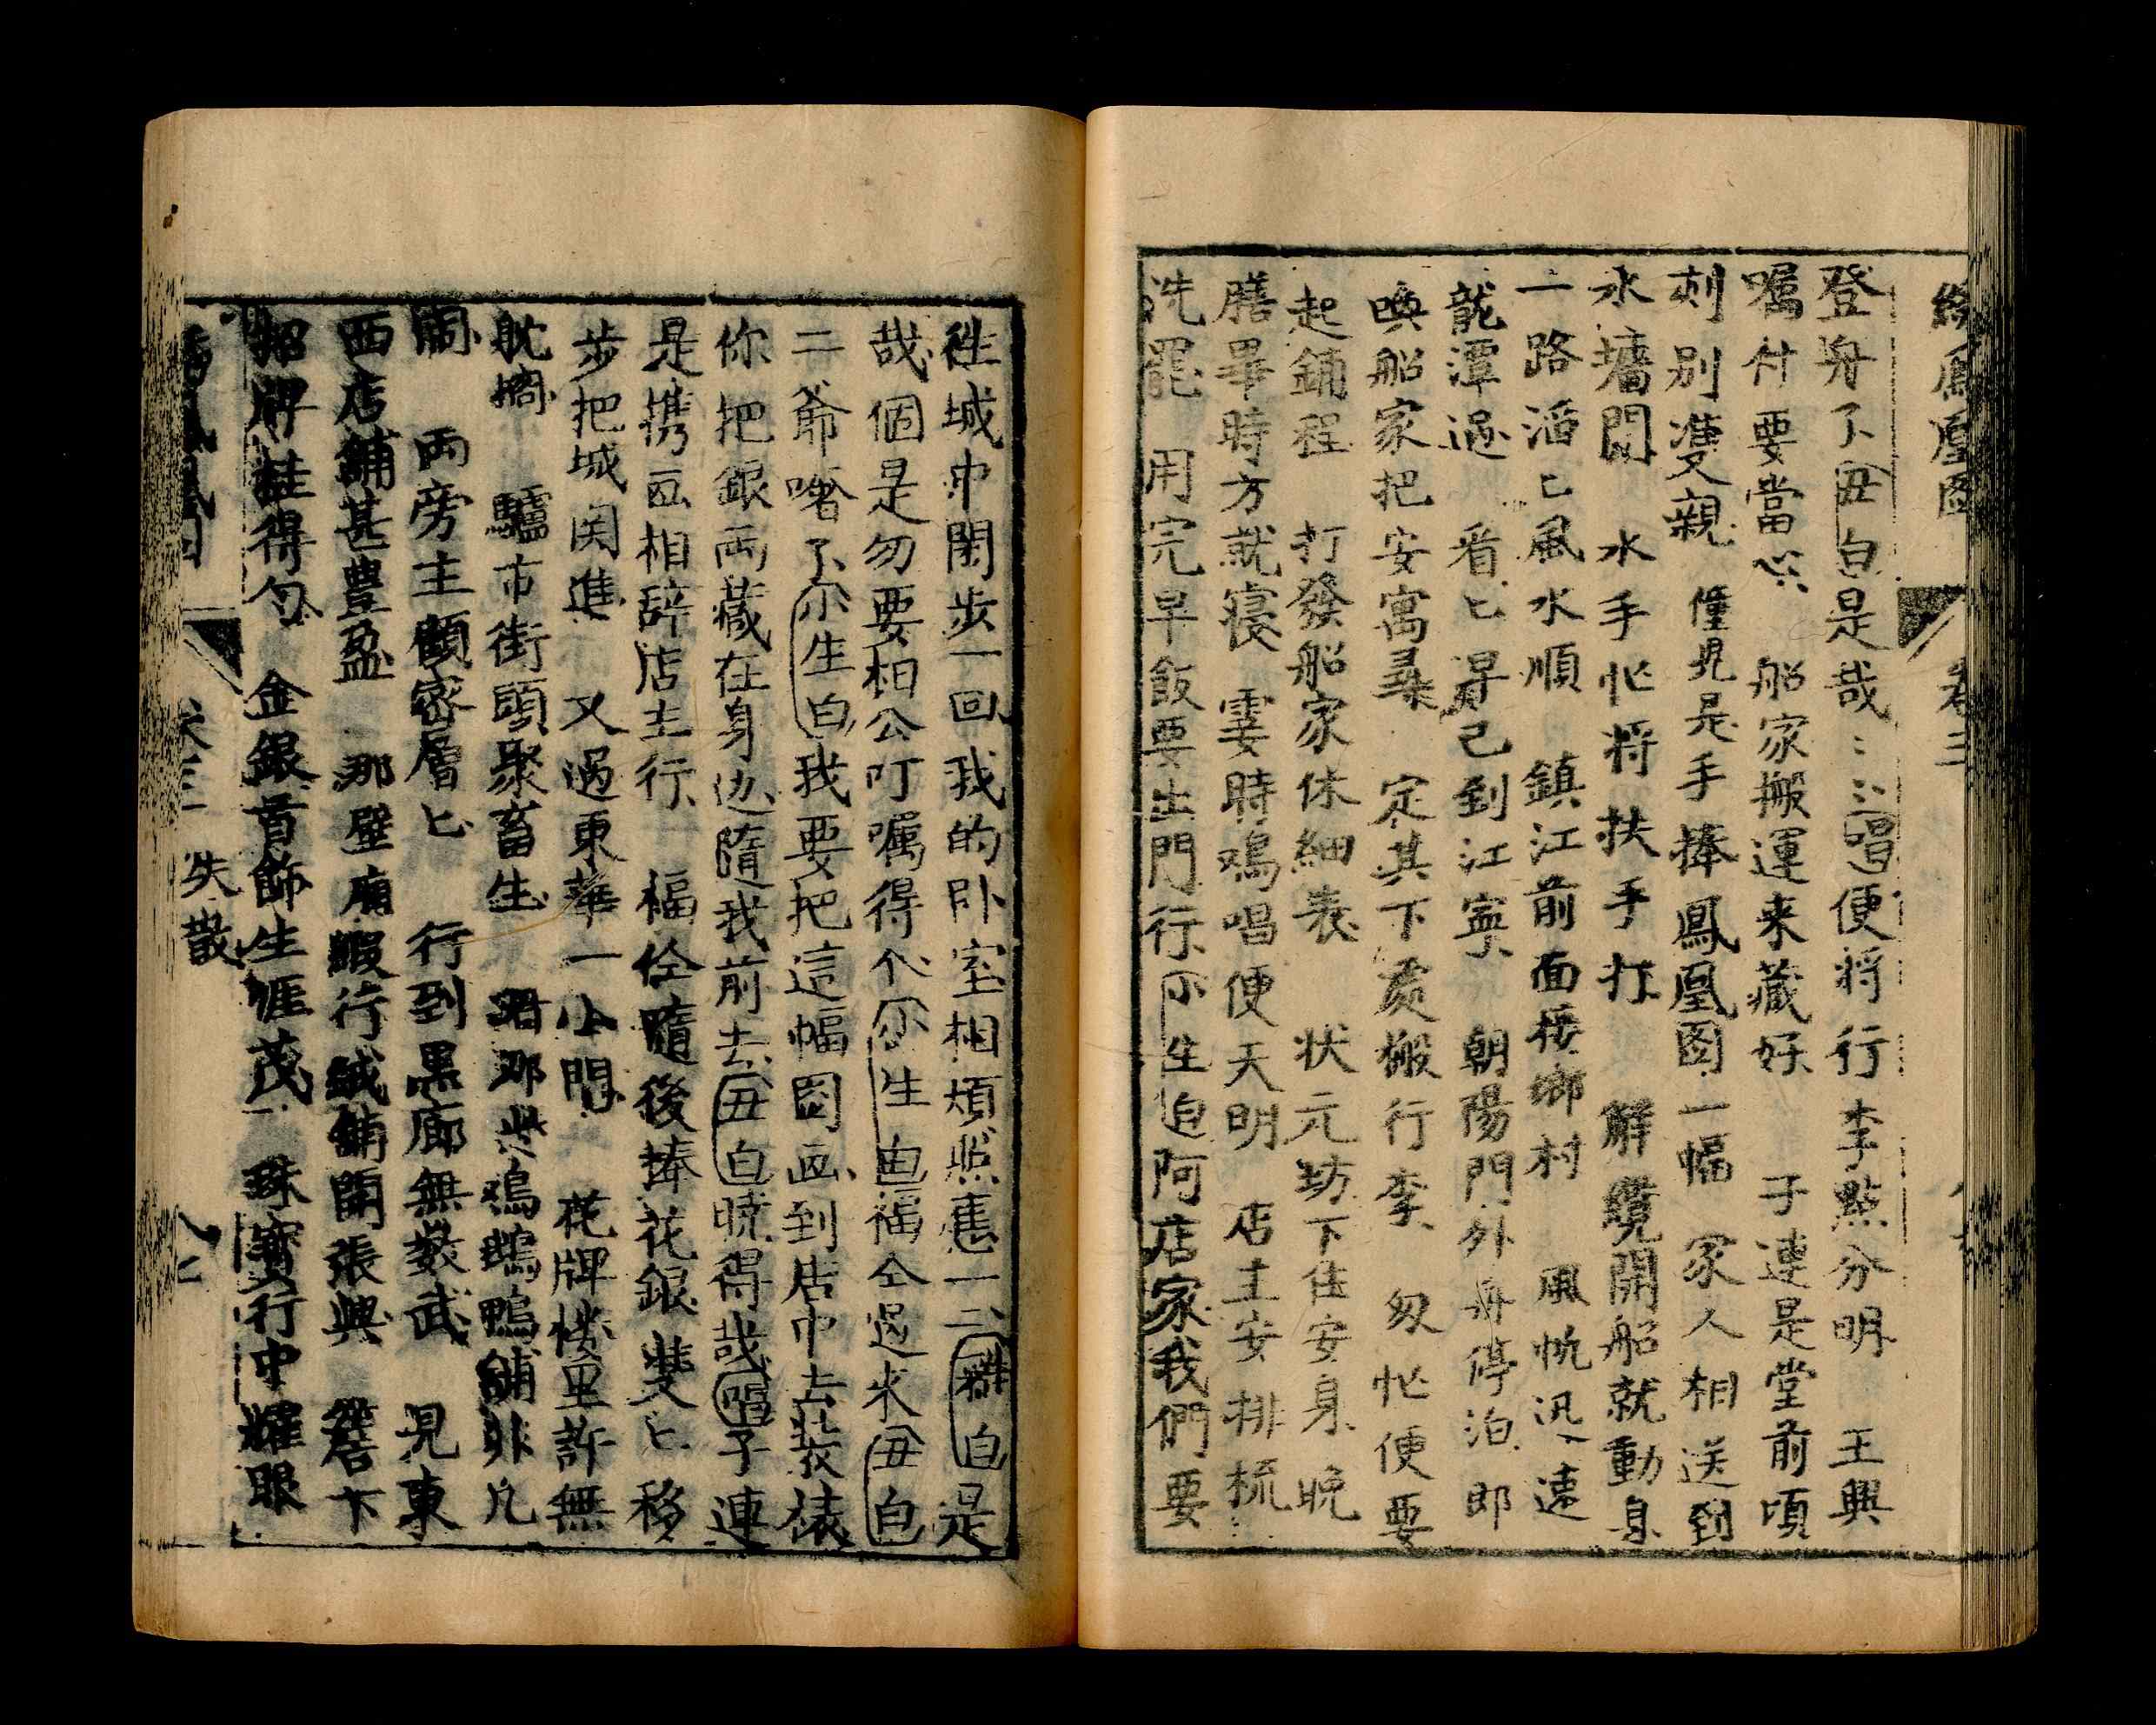 登舟了丑白是哉〻〻唱便将行李點分明　王興
嘱付要當心　船家搬運来藏好　子連是堂前頃
刻别䉶親　僮児是手捧鳳凰图一幅　家人相送到
水墻門　水手忙将扶手打　解纜開船就動身
一路滔匕風水順　鎮江前面接鄉村　風帆迅速
龍潭過　看匕早已到江寧　朝陽門外舟停泊　即
喚船家把安寓尋　定其下處搬行李　匆忙便要
起鋪程　打發船家休細表　状元坊下住安身　晚
膳畢時方就寝　霎時鸡唱便天明　店主安排梳
洗罷　用完早飯要出門行　小生白阿店家我們要
往城中閑步一回我的卧室相煩照應一二　白是
哉個是勿要相公叮嘱得个　小生白福仝過来丑白
二爺啥了小生白我要把這幅图画到店中去装裱
你把銀両藏在身边随我前去丑白曉得哉唱子連
是携画相辞店主行　福仝隨後捧花銀　雙匕移
步把城関進　又過東華一小門　花牌楼里許無
躭擱　驢市街頭聚畜生　君那些鸡鵝鴨鋪非凡
鬧　両旁主顧密層匕　行到黒廊無数武　見東
西店鋪甚豊盈　那壁廂緞行绒鋪開張興　簷下
招牌挂得勻　金銀首飾生涯茂　珠寶行中耀眼
鳳凰图　卷三　失散